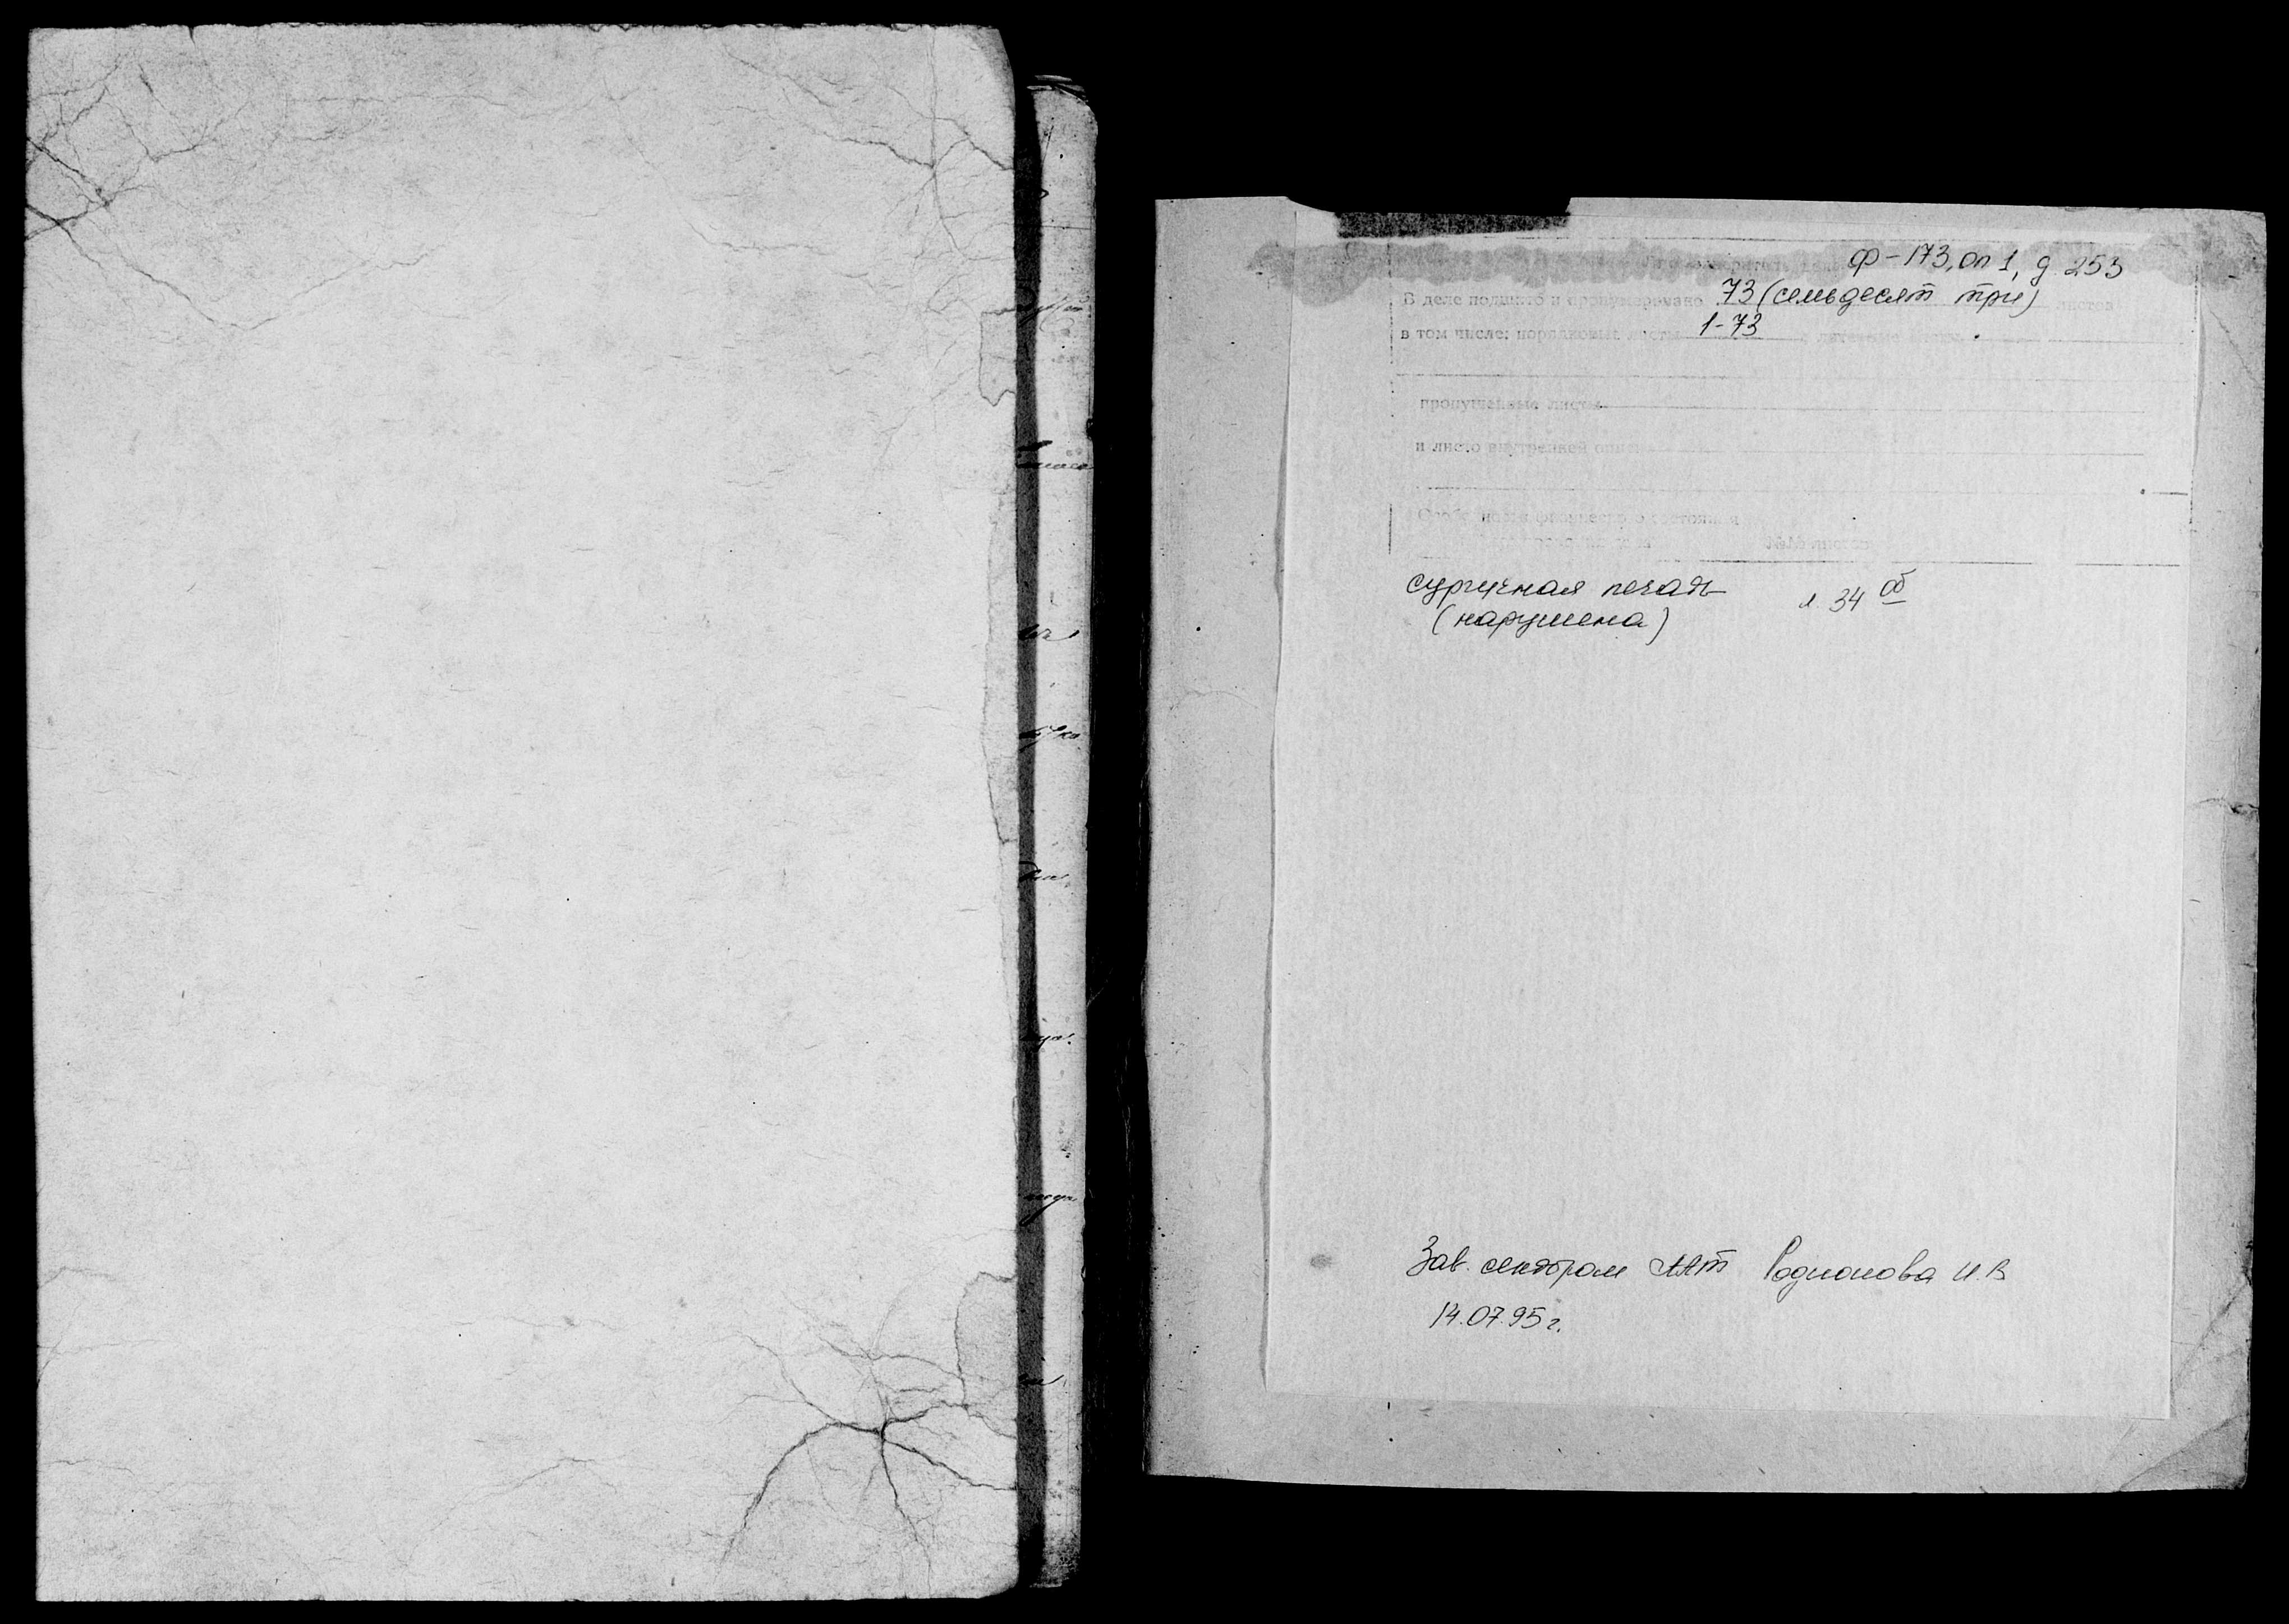 ф-173, оп 1, д 253
В деле подшито и пронумеровано 73 (семьдесят три) листов
в том числе: порядковые листы 1-73
пропущенные листы
и листо внутренней описи
Особенности физического состояния
№№ листов
сургучная печать л. 34 об
(нарушена)
Зав. сектором Родионова И.В
14.07.95 г.